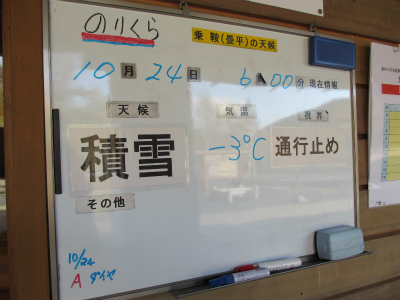 のりくら
乗鞍(畳平)の天候
10月24日 6:00分現在情報
天候 気温 視界
積雪 -3℃ 通行止め
その他
10/24
A ダイヤ